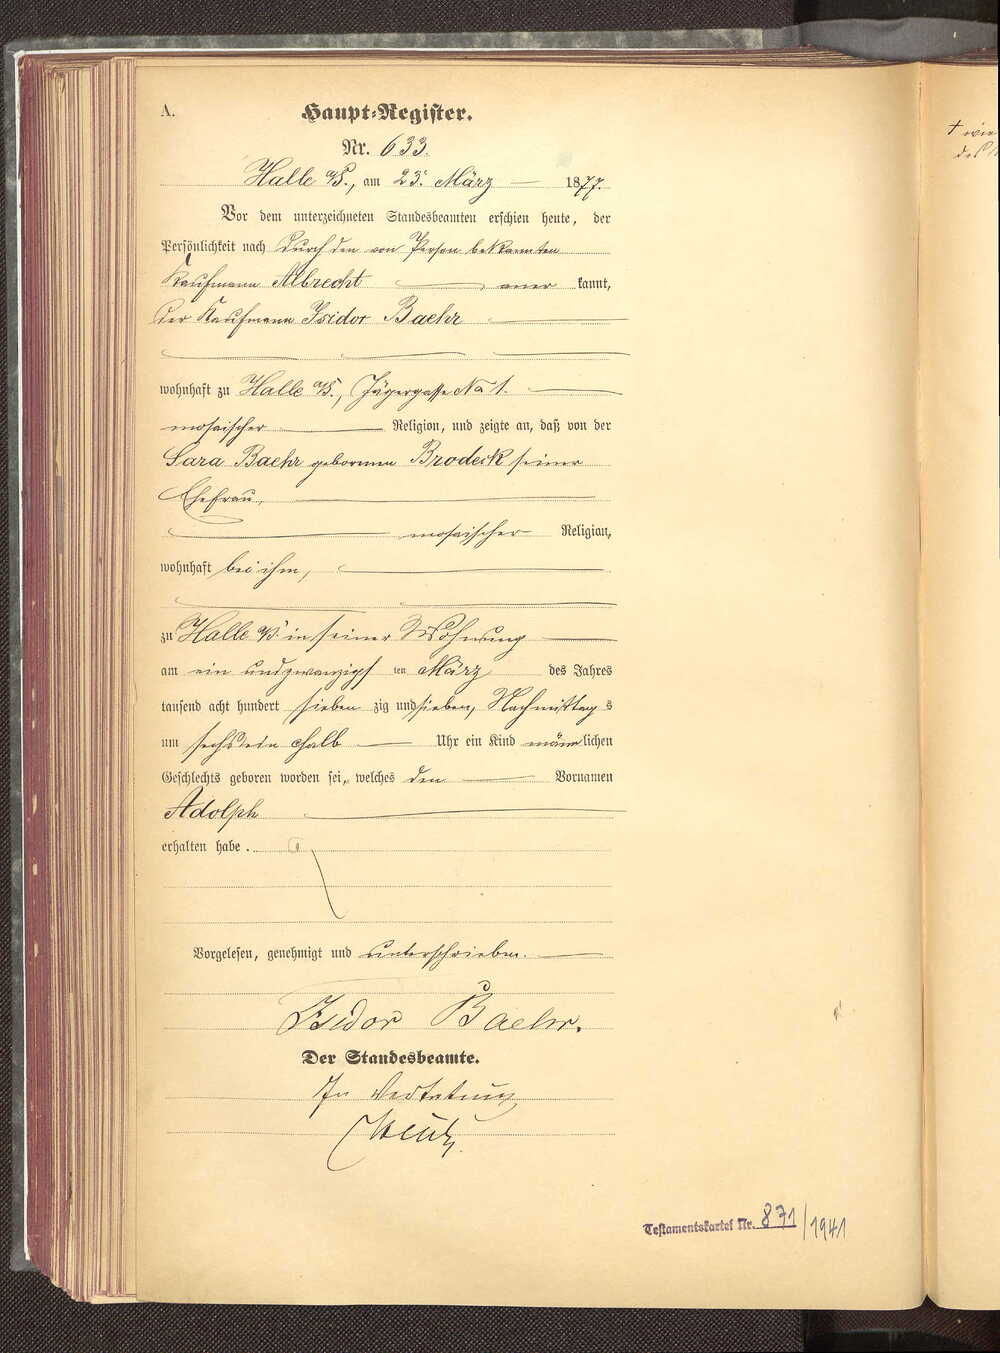 A.
Haupt-Register.
Nr. 633.
Halle a/S., am 23. März 1877.
Vor dem unterzeichneten Standesbeamten erschien heute, der
Persönlichkeit nach durch den von Person bekannten
Kaufmann Albrecht aner kannt,
der Kaufmann Isidor Baehr
wohnhaft zu Halle a/S., Jägergasse No 1.
mosaischer Religion, und zeigte an, daß von der
Sara Baehr geborenen Brodeck seiner
Ehefrau,
mosaischer Religion,
wohnhaft bei ihm,
zu Halle a/S. in seiner Wohnung
am ein und zwanzigs ten März des Jahres
tausend acht hundert sieben zig und sieben, Nachmittag s
um sechs ein halb Uhr ein Kind männ lichen
Geschlechts geboren worden sei, welches den Vornamen
Adolph
erhalten habe.
Vorgelesen, genehmigt und unterschrieben.
Isidor Baehr.
Der Standesbeamte.
In Vertretung
Testamentskartei Nr. 871/1941